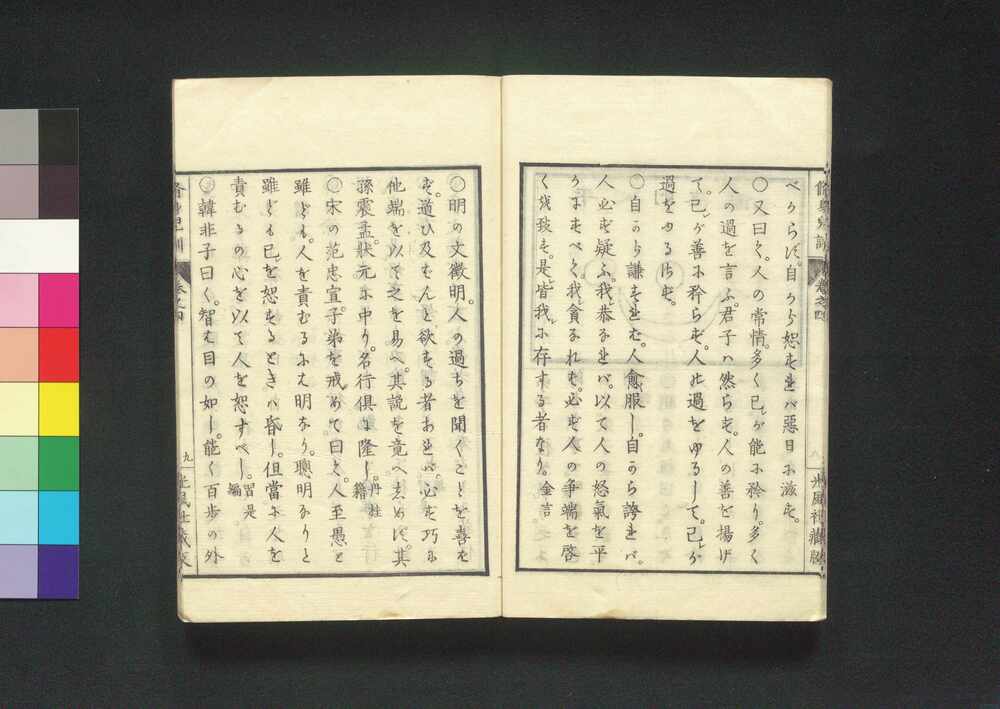 べからず。自から恕すれバ惡日ニ滋す。
〇又曰く。人の常情。多く己が能ニ矜り。多く
人の過を言ふ。君子ハ然らず。人の善を揚げ
て。己が善ニ矜らず。人の過をゆるして。己が
過をゆるさず。
〇自から謙すれば。人愈服し。自から誇れバ。
人必ず疑ふ。我恭なれバ。以て人の怒氣を平
かにすべく。我貪なれば。必ず人の争端を啓
く。是皆我に存する者なり。金言
〇明の文徴明。人の過ちを聞くことを喜ば
ず。適ひ及ばんと欲する者あれバ。必ず巧に
他端を以て之を易へ。其説を竟へしめず。其
孫震孟。狀元に中り。名行倶に隆し。丹桂籍
〇宋の范忠宣。子弟を戒めて曰く。人至愚と
雖ども。人を責むるにハ明なり。聰明なりと
雖ども己を恕するときハ昏し。但當に人を
責むるの心を以て
人を恕すべし。習是編
〇韓非子曰く。智は目の如し。能く百歩の外
卷之四
八
九